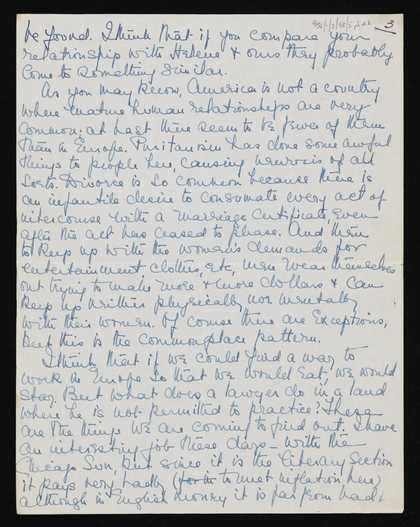 3
be found. I think that if you compare your
relationship with Helene & ours they probably
come to something similar.
As you may know, America is not a country
where mature human relationships are very
common; at least there seem to be fewer of them
than in Europe. Puritanism has done some awful
things to people here, causing neurosis of all
sorts. Divorce is so common because there is
an infantile desire to consumate every act of
intercourse with a marriage certificate, even
after the act has ceased to please. And then
to keep up with the woman's demands for
entertainment, clothes, etc, men wear themselves
out trying to make more & more dollars & can
keep up neither physically nor mentally
with their women. Of course there are exceptions,
but this is the commonplace pattern.
I think that if we could find a way to
work in Europe so that we would eat, we would
stay. But what does a lawyer do in a land
where he is not permitted to practice? These
are the things we are coming to find out. I have
an interesting job these days - with the
Chicago Sun, but since it is the literary section
it pays very badly (to meet inflation here)
although in English money it is far from bad.